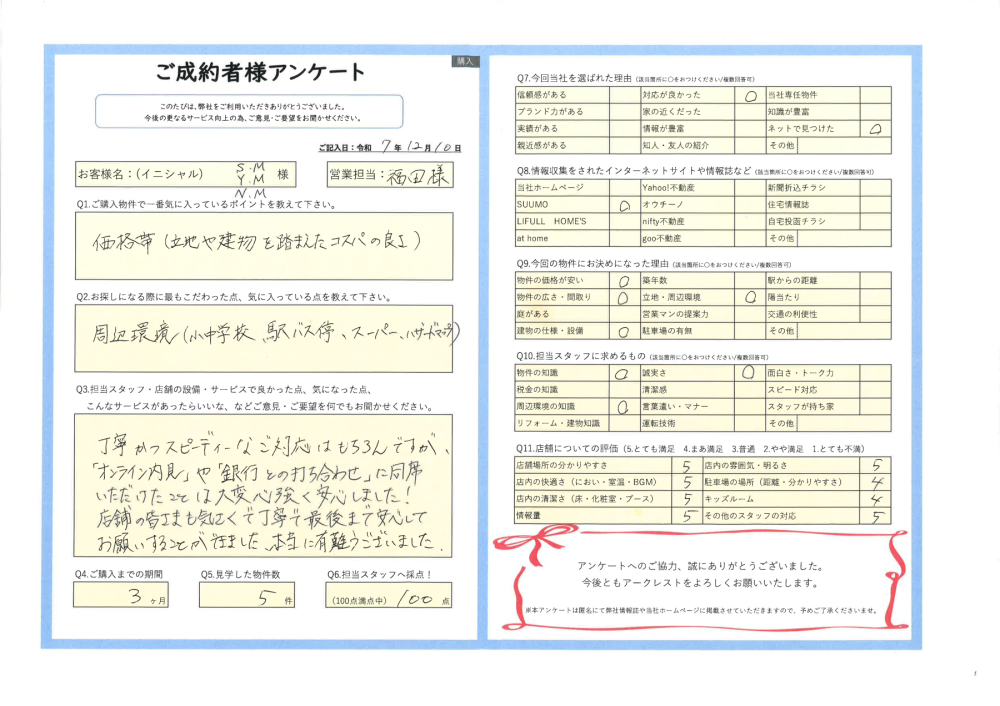 購入
ご成約者様アンケート
このたびは、弊社をご利用いただきありがとうございました。
今後の更なるサービス向上の為、ご意見・ご要望をお聞かせください。
ご記入日：令和 7 年 12 月 10 日
お客様名：(イニシャル) S.M Y.M N.M 様
営業担当：福田様
Q1.ご購入物件で一番気に入っているポイントを教えて下さい。
価格帯(立地や建物を踏まえたコスパの良さ)
Q2.お探しになる際に最もこだわった点、気に入っている点を教えて下さい。
周辺環境(小中学校、駅バス停、スーパー、ハザードマップ)
Q3.担当スタッフ・店舗の設備・サービスで良かった点、気になった点、
こんなサービスがあったらいいな、などご意見・ご要望を何でもお聞かせください。
丁寧かつスピーディーなご対応はもちろんですが、
「オンライン内見」や「銀行との打ち合わせ」に同席
いただけたことは大変心強く安心しました！
店舗の皆さまも気さくで丁寧で最後まで安心して
お願いすることが出来ました。本当に有難うございました。
Q4.ご購入までの期間
3 ヶ月
Q5.見学した物件数
5 件
Q6.担当スタッフへ採点！
(100点満点中) 100 点
Q7.今回当社を選ばれた理由 (該当箇所に〇をおつけください/複数回答可)
信頼感がある 対応が良かった ○ 当社専任物件
ブランド力がある 家の近くだった 知識が豊富
実績がある 情報が豊富 ネットで見つけた ○
親近感がある 知人・友人の紹介 その他
Q8.情報収集をされたインターネットサイトや情報誌など (該当箇所に〇をおつけください/複数回答可)
当社ホームページ Yahoo!不動産 新聞折込チラシ
SUUMO ○ オウチーノ 住宅情報誌
LIFULL HOME'S nifty不動産 自宅投函チラシ
at home goo不動産 その他
Q9.今回の物件にお決めになった理由 (該当箇所に〇をおつけください/複数回答可)
物件の価格が安い ○ 築年数 駅からの距離
物件の広さ・間取り ○ 立地・周辺環境 ○ 陽当たり
庭がある 営業マンの提案力 交通の利便性
建物の仕様・設備 ○ 駐車場の有無 その他
Q10.担当スタッフに求めるもの (該当箇所に〇をおつけください/複数回答可)
物件の知識 ○ 誠実さ ○ 面白さ・トーク力
税金の知識 清潔感 スピード対応
周辺環境の知識 ○ 言葉遣い・マナー スタッフが持ち家
リフォーム・建物知識 運転技術 その他
Q11.店舗についての評価 (5.とても満足 4.まあ満足 3.普通 2.やや満足 1.とても不満)
店舗場所の分かりやすさ 5 店内の雰囲気・明るさ 5
店内の快適さ（におい・室温・BGM） 5 駐車場の場所（距離・分かりやすさ） 4
店内の清潔さ（床・化粧室・ブース） 5 キッズルーム 4
情報量 5 その他のスタッフの対応 5
アンケートへのご協力、誠にありがとうございました。
今後ともアークレストをよろしくお願いいたします。
※本アンケートは匿名にて弊社情報誌や当社ホームページに掲載させていただきますので、予めご了承くださいませ。